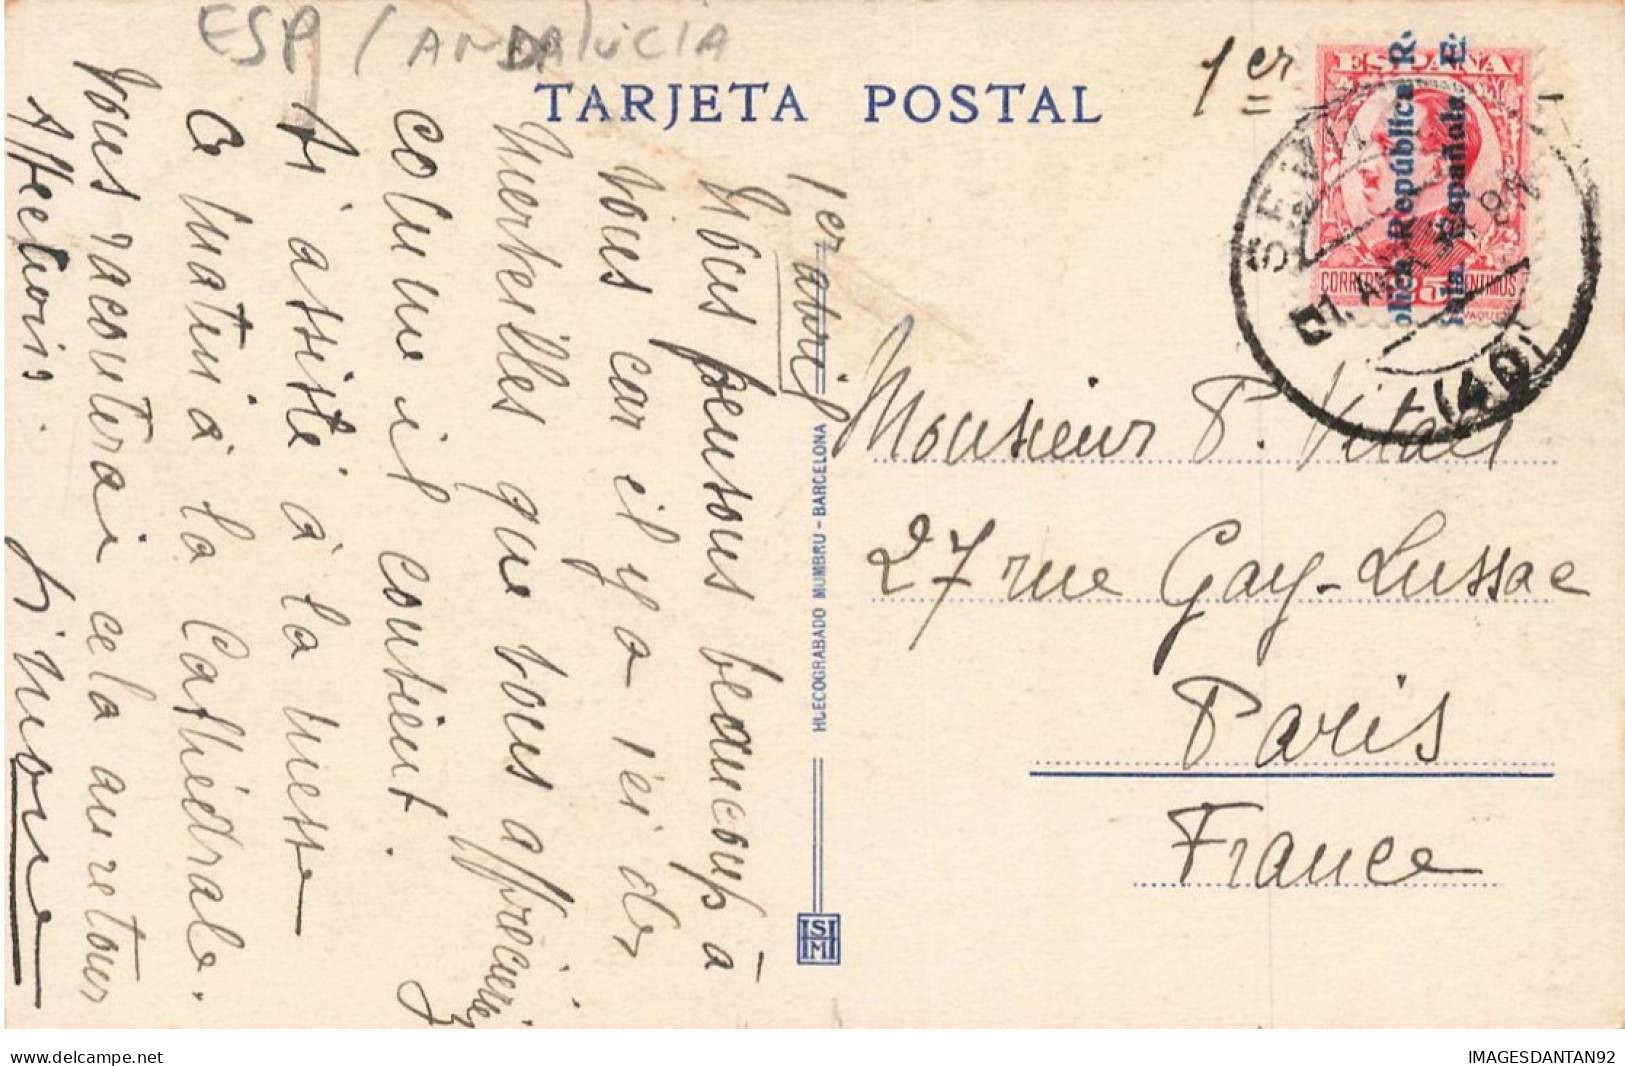 ESP / ANDALUCIA
TARJETA POSTAL
1er
ESPAÑA
República
Española
CORREOS 25 CENTIMOS
SEVILLA
1er avril
Nous pensons beaucoup à
vous car il y a ici des
merveilles que vous apprécieriez
comme il convient. J'
Ai assisté à la messe
ce matin à la Cathédrale.
Vous raconterai cela au retour
Affectueux.
Simone
HUECOGRABADO MUMBRU - BARCELONA
Monsieur P. Vitali
27 rue Gay-Lussac
Paris
France
esp822
IMAGESDANTAN92